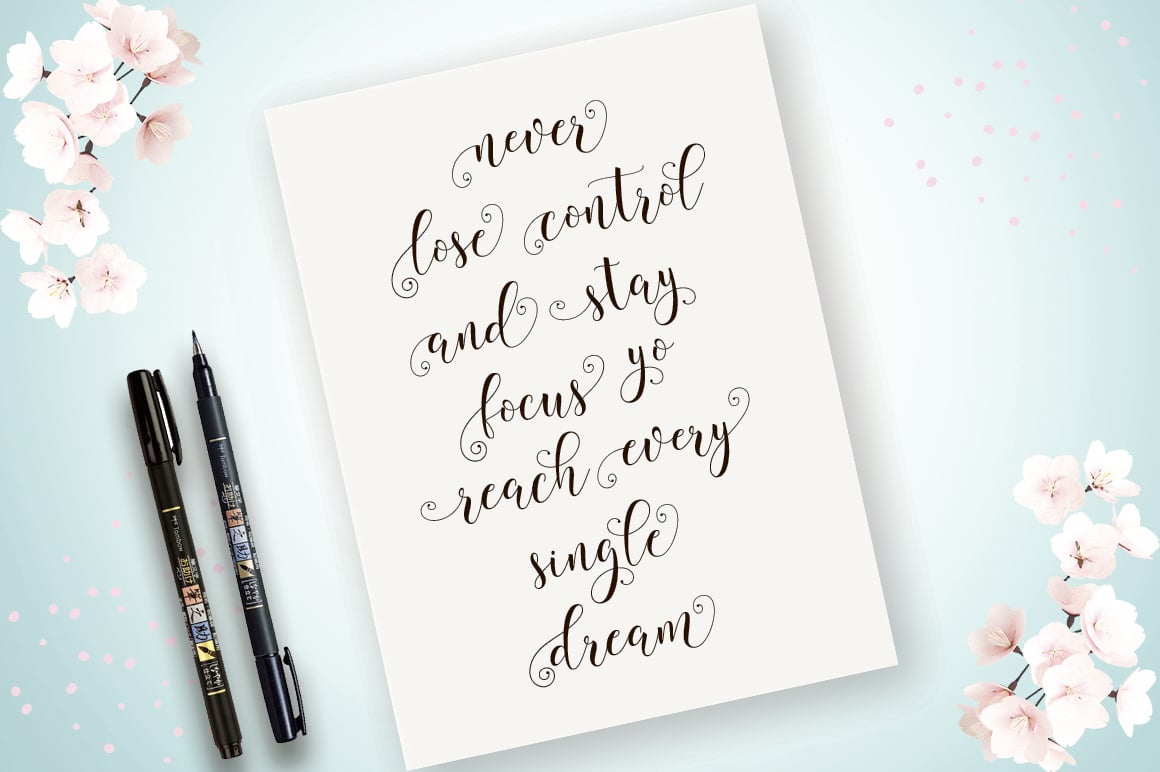 never
lose control
and stay
focus yo
reach every
single
dream
Tombow
Tombow